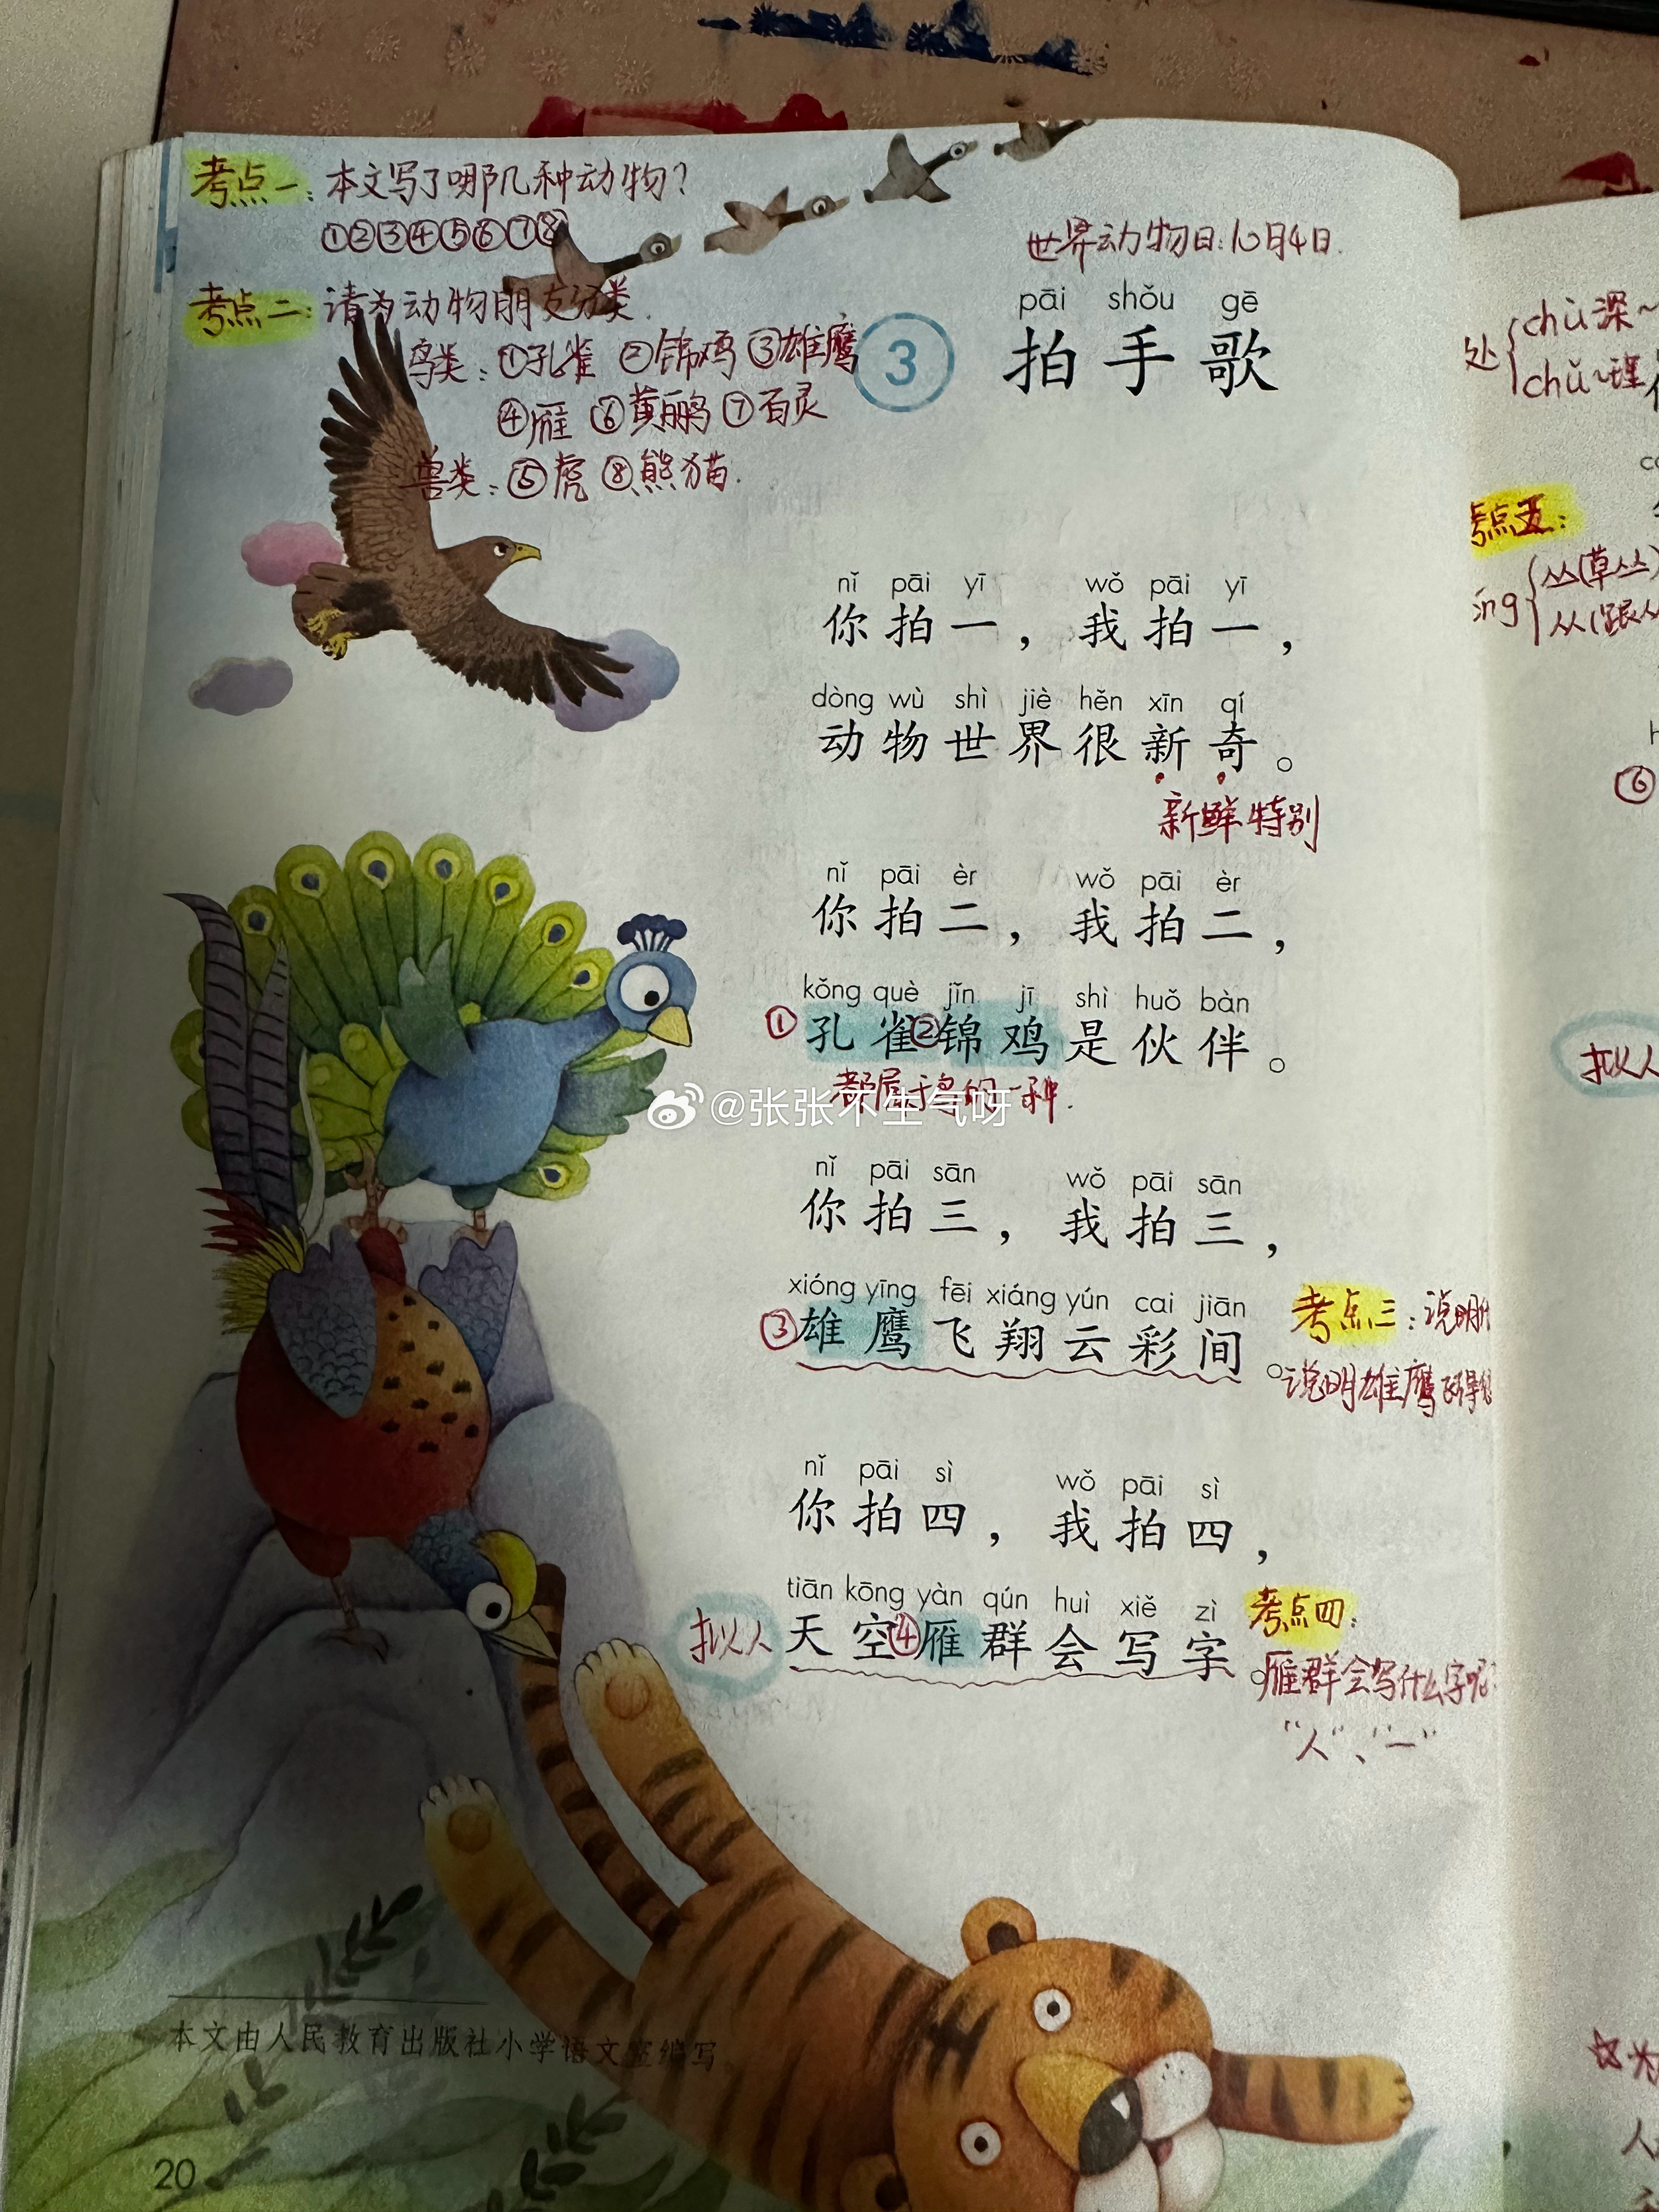 考点一：本文写了哪几种动物？
①②③④⑤⑥⑦⑧
世界动物日：10月4日.
考点二：请为动物朋友分类.
鸟类：①孔雀 ②锦鸡 ③雄鹰
④雁 ⑥黄鹂 ⑦百灵
兽类：⑤虎 ⑧熊猫.
pāi shǒu gē
3 拍手歌
nǐ pāi yī wǒ pāi yī
你拍一，我拍一，
dòng wù shì jiè hěn xīn qí
动物世界很新奇。
新鲜特别
nǐ pāi èr wǒ pāi èr
你拍二，我拍二，
kǒng què jǐn jī shì huǒ bàn
①孔雀②锦鸡是伙伴。
都属于鸟的一种.
@张张不生气呀
nǐ pāi sān wǒ pāi sān
你拍三，我拍三，
xióng yīng fēi xiáng yún cai jiān
③雄鹰飞翔云彩间。
考点三：说明
说明雄鹰飞得
nǐ pāi sì wǒ pāi sì
你拍四，我拍四，
tiān kōng yàn qún huì xiě zì
拟人 天空④雁群会写字。
考点四：
雁群会写什么字呢
“人”、“一”
本文由人民教育出版社小学语文室编写
20
处 chù深~
chǔ~理
考点五：
丛(草丛)
从(跟从
⑥
拟人